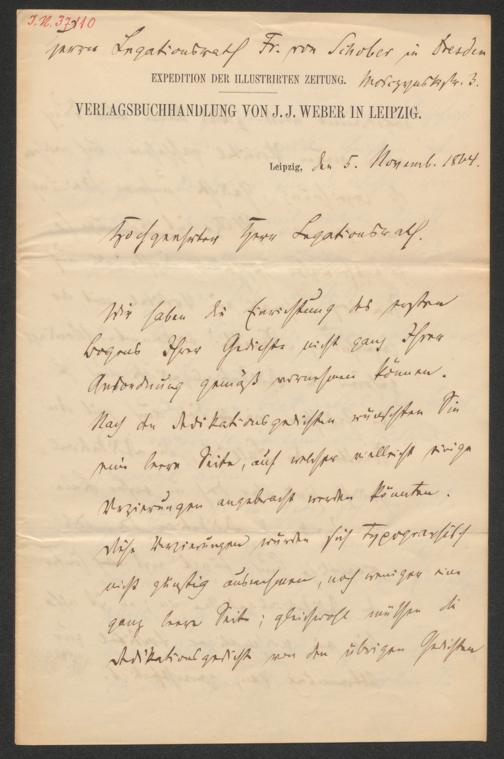 J.N. 37110
Herrn Legationsrath Fr. von Schober in Dresden
Mosczynskistr. 3.
EXPEDITION DER ILLUSTRIRTEN ZEITUNG.
VERLAGSBUCHHANDLUNG VON J. J. WEBER IN LEIPZIG.
Leipzig, den 5. Novemb. 1864.
Hochgeehrter Herr Legationsrath.
Wir haben die Einrichtung des ersten
Bogens Ihrer Gedichte nicht ganz Ihrer
Anordnung gemäß vornehmen können.
Nach den Dedikationsgedichten wünschten Sie
eine leere Seite, auf welcher vielleicht einige
Verzierungen angebracht werden könnten.
Diese Verzierungen würden sich typographisch
nicht günstig ausnehmen, noch weniger eine
ganz leere Seite; gleichwohl müssen die
Dedikationsgedichte von den übrigen Gedichten